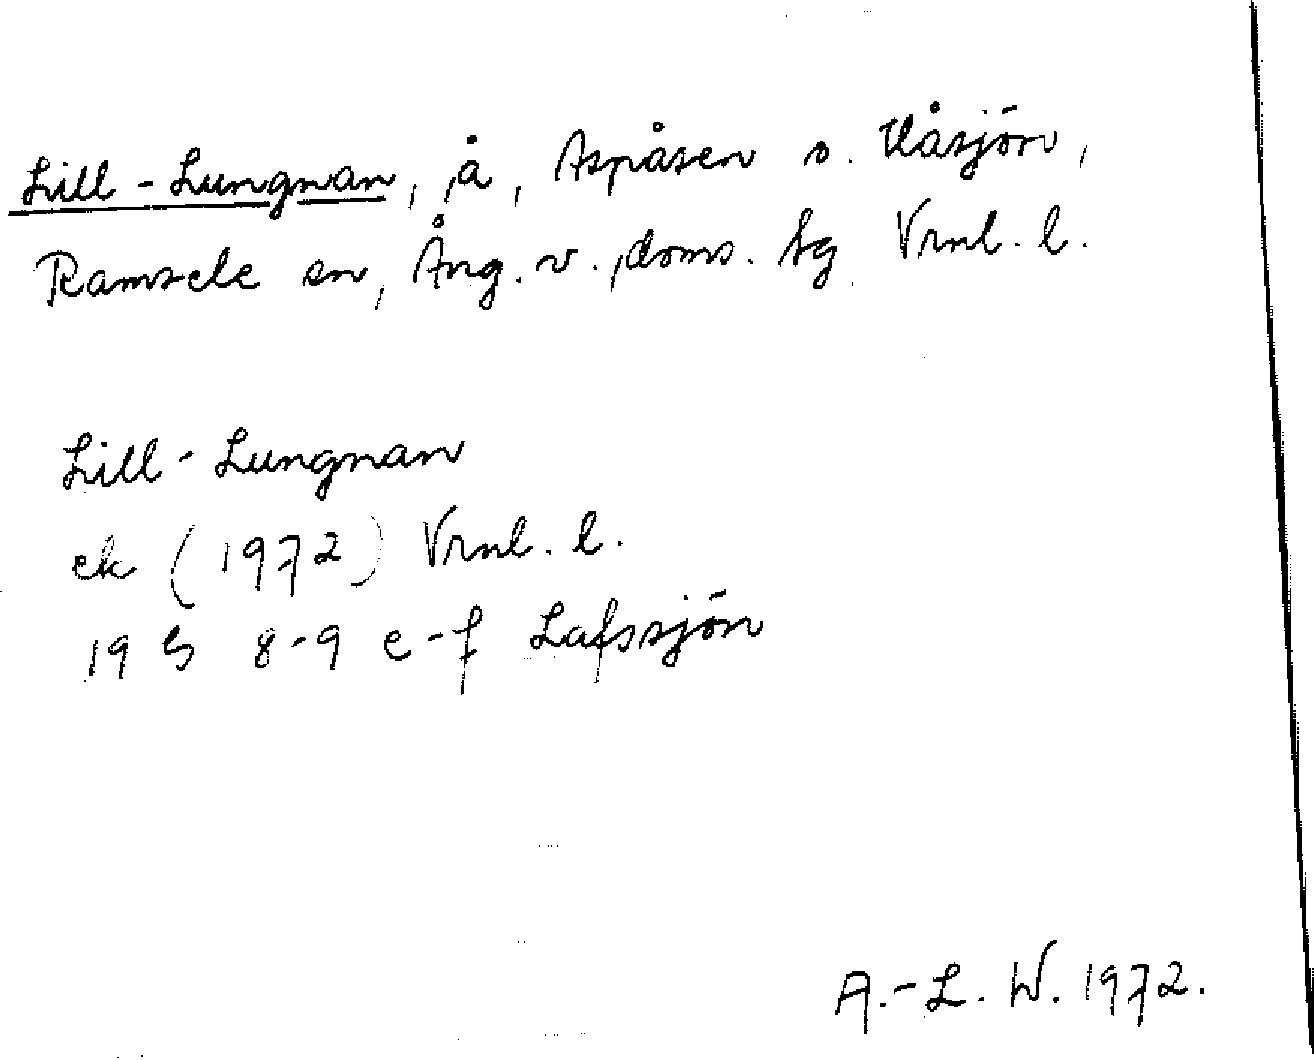 Lill-Lungnan, å, Aspåsen o. Våsjön,
Ramsele sn, Ång. v. doms. tg Vrnl. l.
Lill-Lungnan
ek (1972) Vrnl. l.
19 G 8-9 e-f Lafssjön
A.-L. W. 1972.